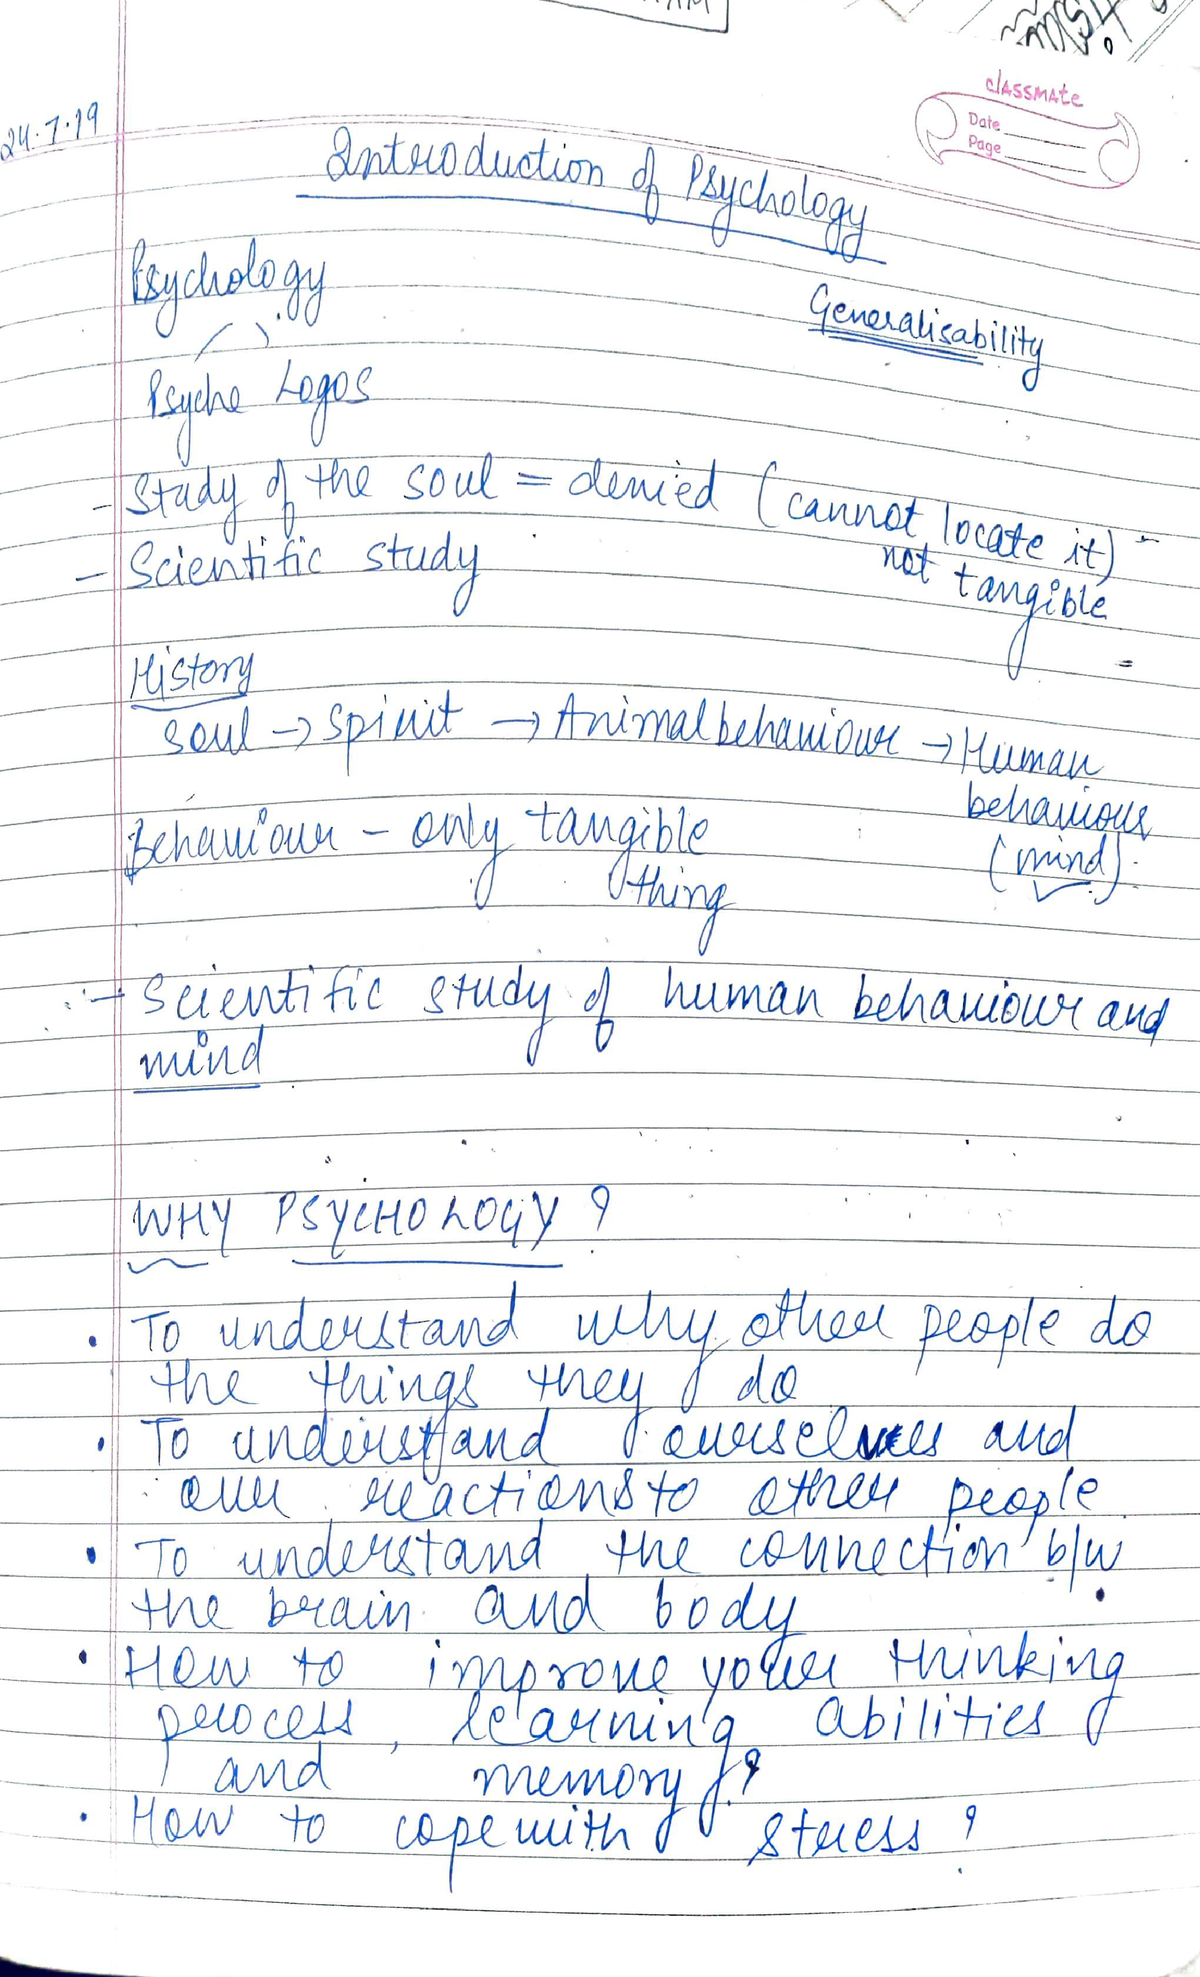 classmate
Date
Page
24.7.19
Introduction of Psychology
Psychology
Generalisability
Psyche Logos
- Study of the soul = denied (cannot locate it)
not tangible
- Scientific study
History
soul → spirit → Animal behaviour → Human
behaviour
(mind)
Behaviour - only tangible
thing
→ Scientific study of human behaviour and
mind
WHY PSYCHOLOGY ?
• To understand why other people do
the things they do
• To understand ourselves and
our reactions to other people
• To understand the connection b/w
the brain and body
• How to improve your thinking
process, learning abilities
and memory?
• How to cope with stress ?